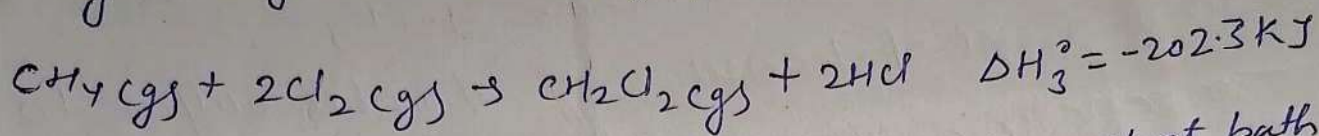 CH4(g) + 2Cl2(g) → CH2Cl2(g) + 2HCl ΔH°3 = -202.3 KJ
bath